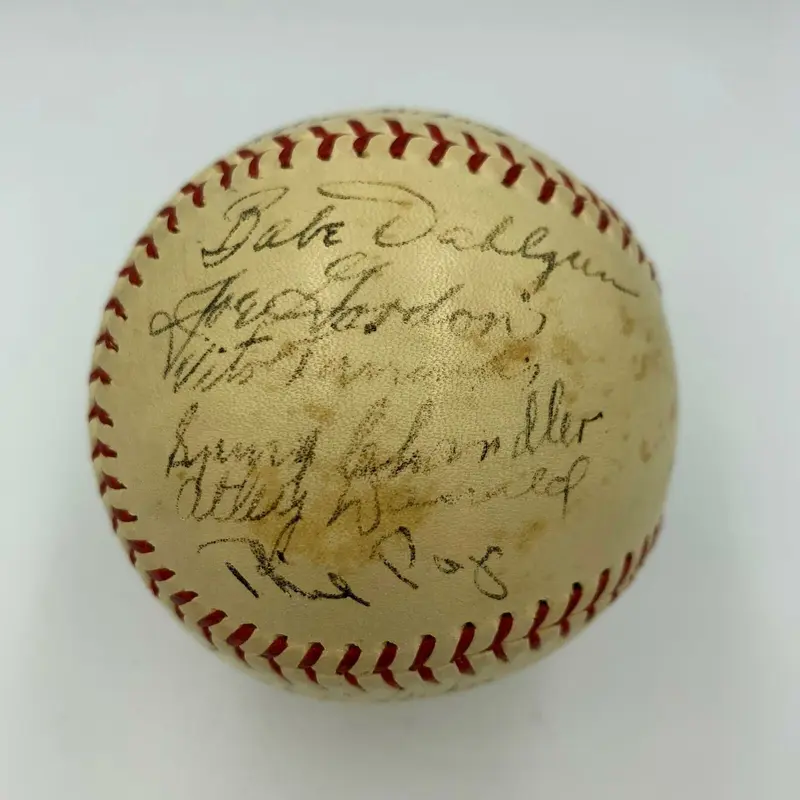 Babe Dahlgren
Joe Gordon
Vito Tamulis
Spurg Chandler
Atley Donald